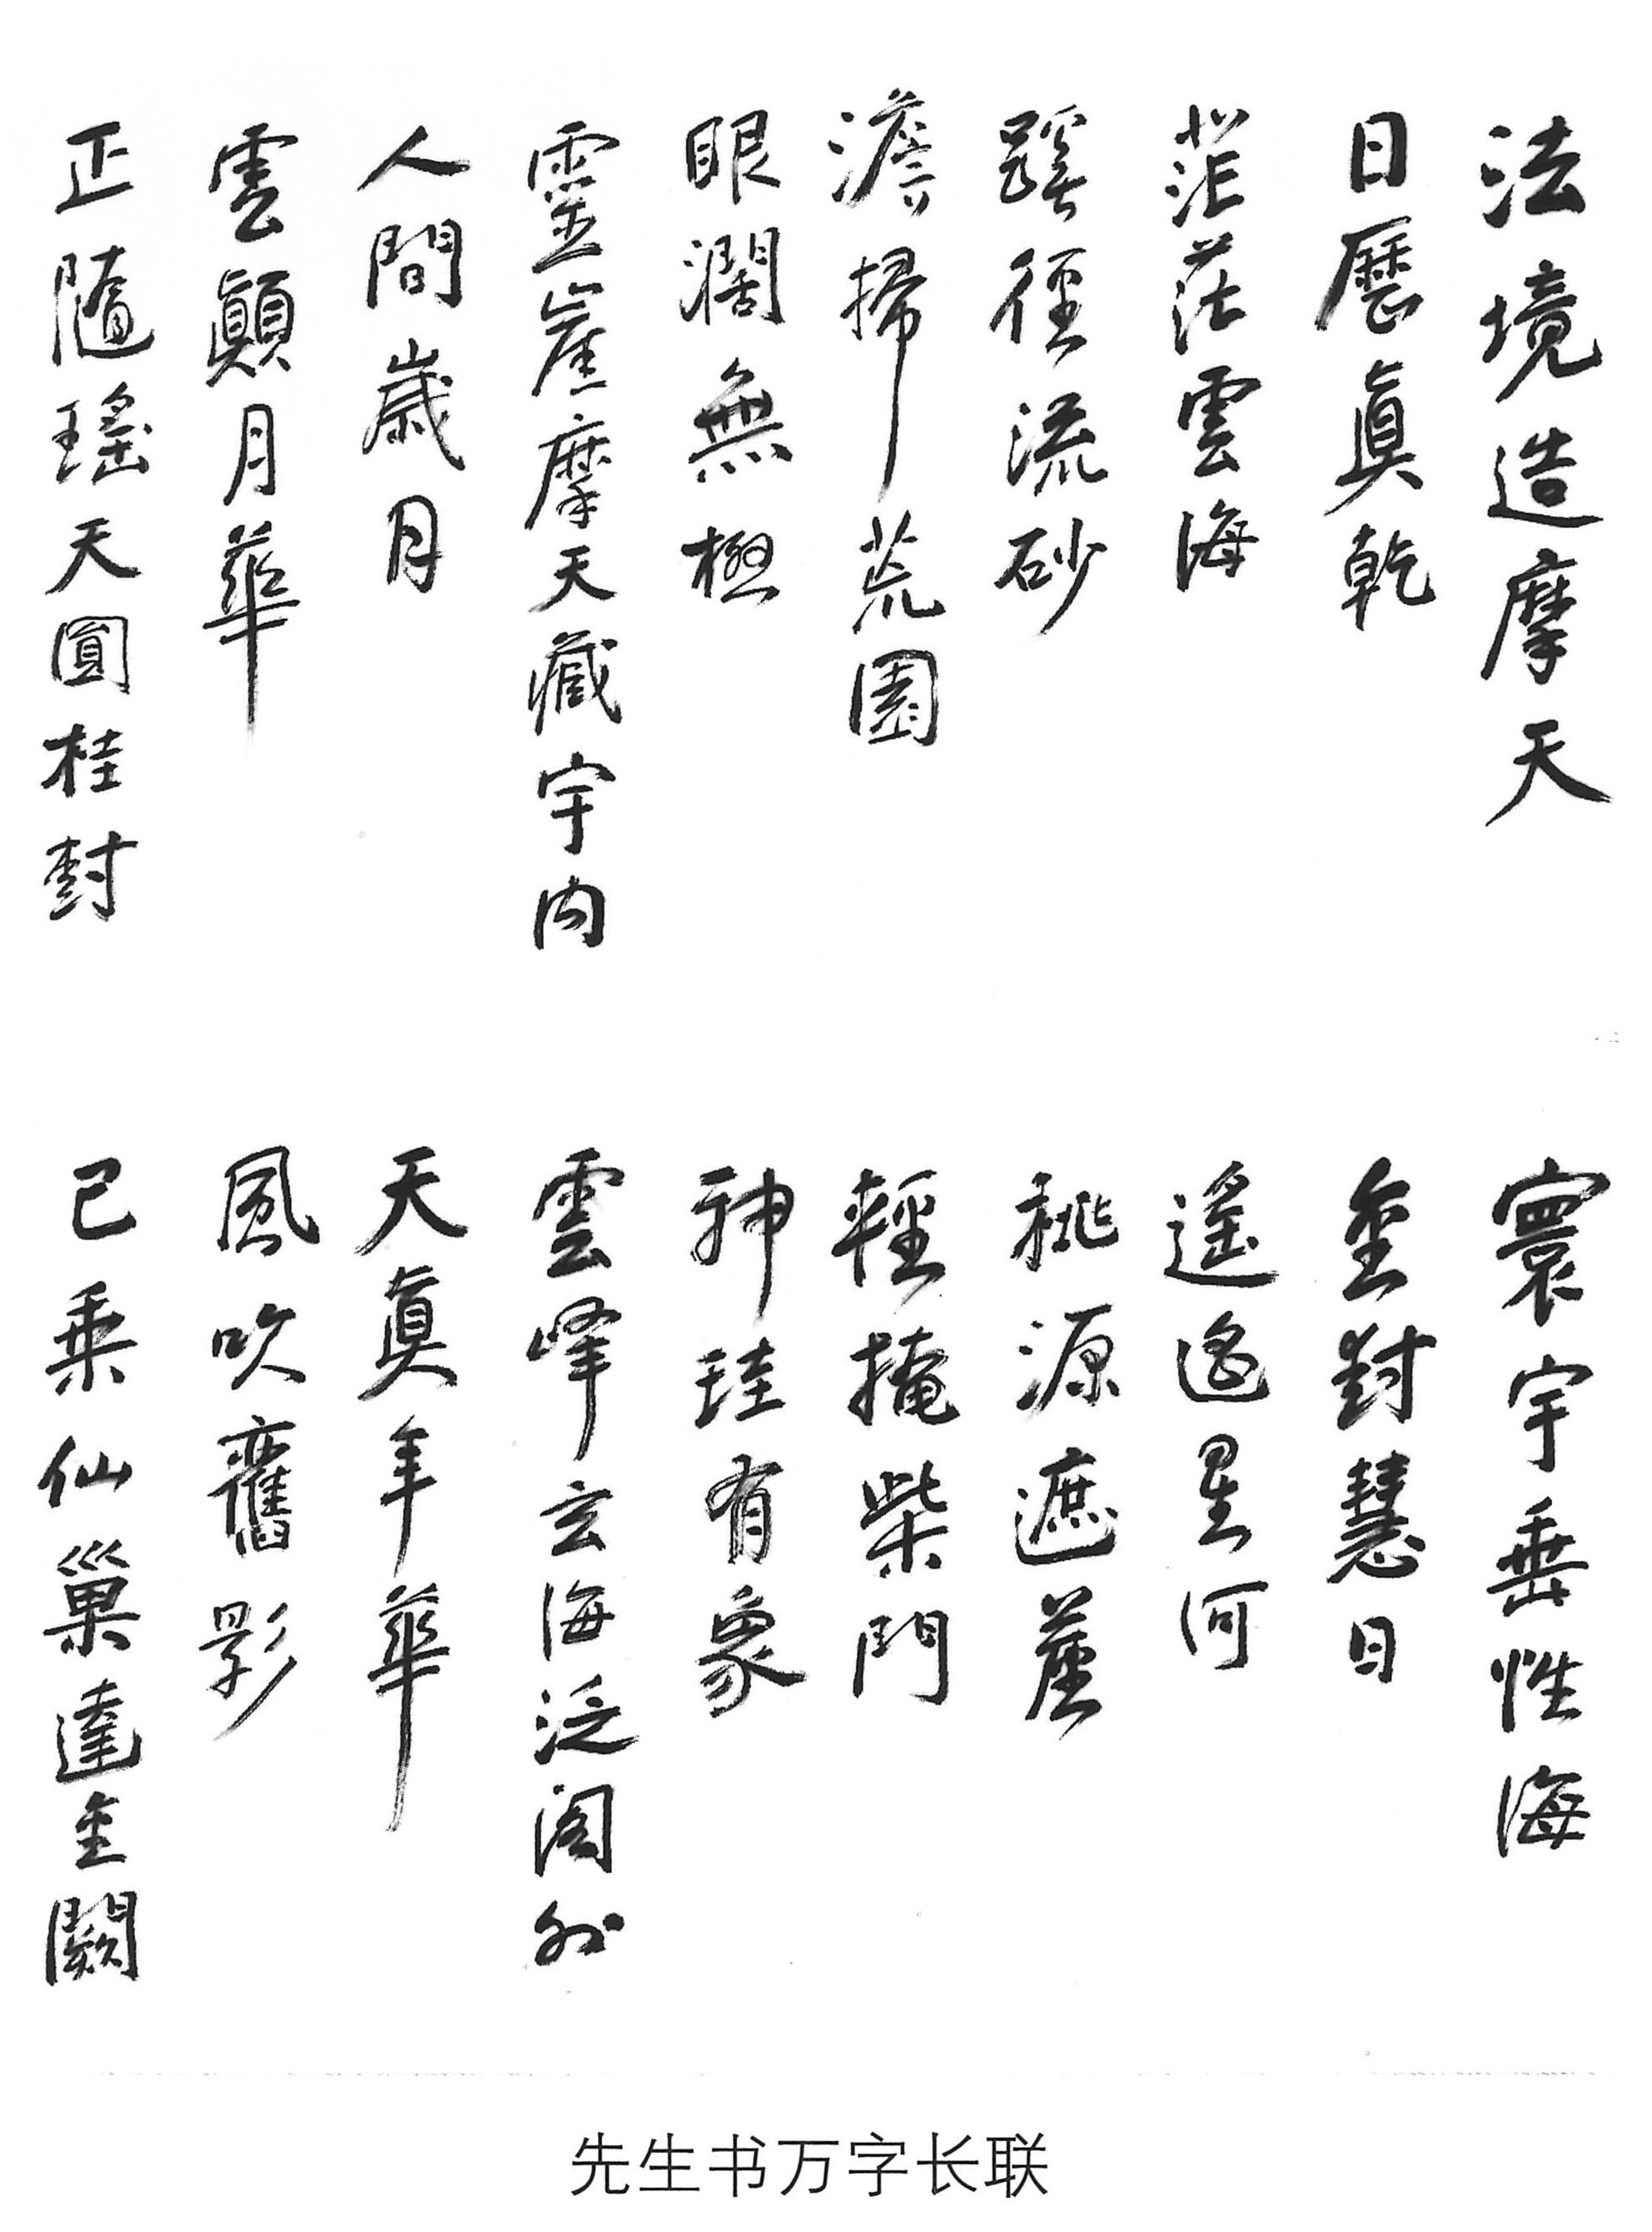 法境造摩天
日曆眞乾
茫茫雲海
蹊徑流砂
澹掃荒園
眼濶無極
靈崖摩天藏宇内
人間歲月
雲顚月華
正隨瑤天圓桂封
寰宇垂性海
金對慧日
遥遥星河
桃源遮蔭
輕掩柴門
神珪有象
雲峰玄海泛閣外
天眞年華
風吹舊影
已乘仙巢達金闕
先生书万字长联